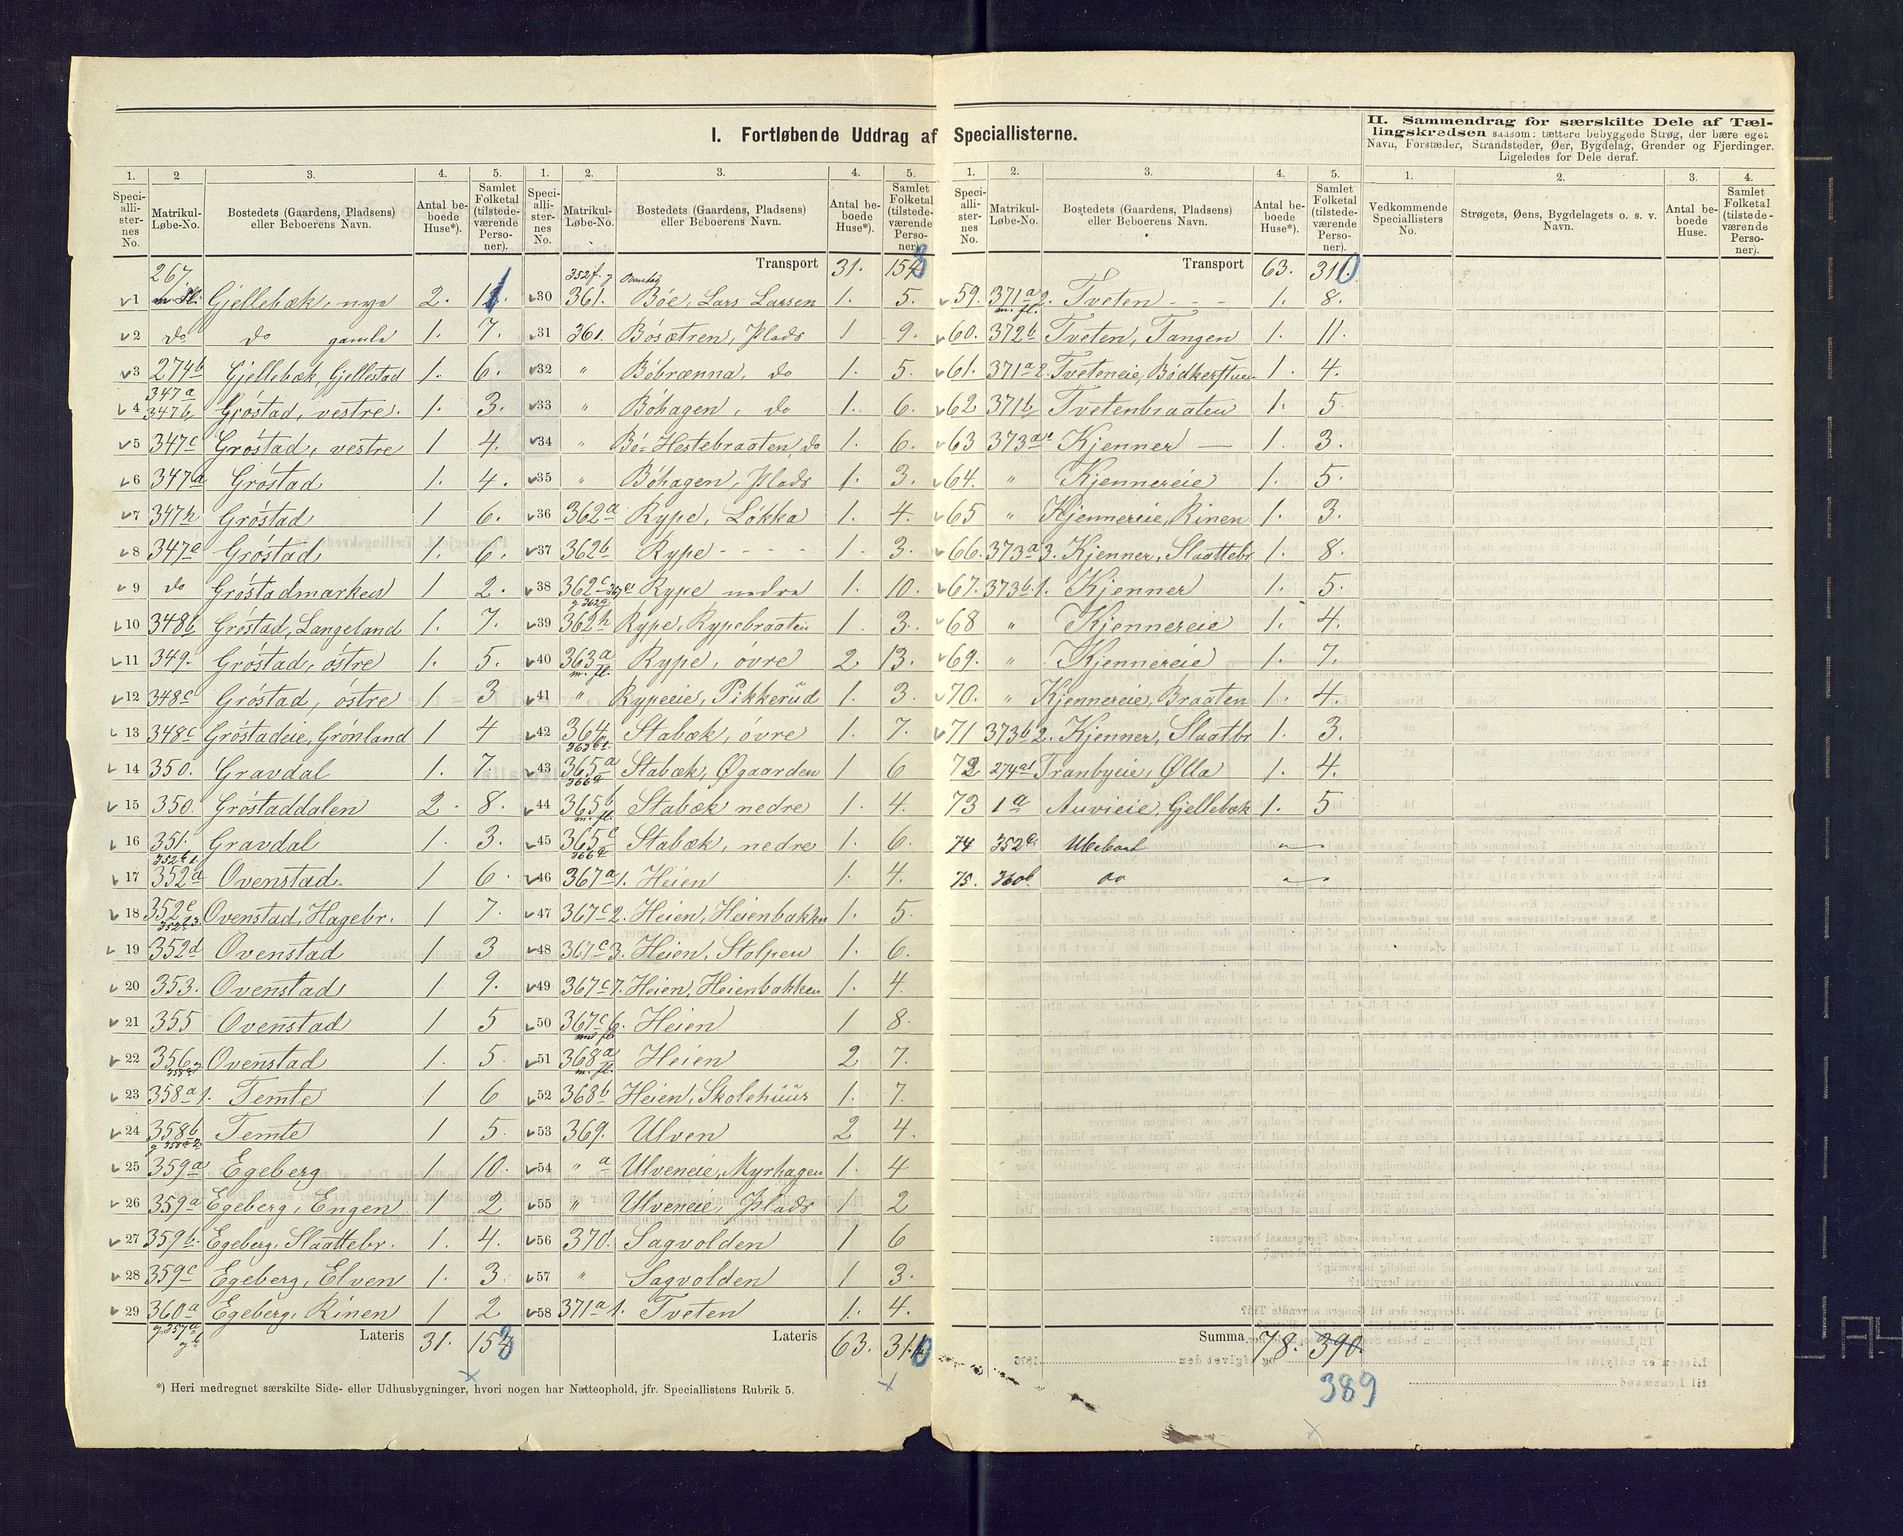 I. Fortløbende Uddrag af Speciallisterne.
II. Sammendrag for særskilte Dele af Tællingskredsen saasom: tættere bebyggede Strøg, der bære eget Navn, Forstæder, Strandsteder, Øer, Bygdelag, Grender og Fjerdinger. Ligeledes for Dele deraf.
1. 2 3. 4. 5.
Speciallisternes No. Matrikul-Løbe-No. Bostedets (Gaardens, Pladsens) eller Beboerens Navn. Antal beboede Huse*). Samlet Folketal (tilstedeværende Personer).
267. m Fl.
1 Gjellebæk, nye 2.
2 do do gamle 1. 7.
3 274b Gjellebæk, Gjellestad 1. 6.
4 347a 347b Gröstad, vestre. 1. 3.
5 347c Gröstad, vestre 1 4.
6 347a Gröstad 1. 4.
7 347h Gröstad 1 6.
8 347a Gröstad 1. 6.
9 do Gröstadmarken 1 2.
10 348b Gröstad, Langeland 1. 7.
11 349. Gröstad, östre 1. 5.
12 348c Gröstad, östre 1 3
13 348c Gröstadeie, Grönland 1 4
14 350. Gravdal 1. 7.
15 350. Gröstaddalen 2. 8.
16 351. Gravdal 1. 3.
17 352a Ovenstad. 1 6.
18 352c Ovenstad, Hagebr. 1 7.
19 352d Ovenstad 1 3
20 353. Ovenstad 1 9.
21 355 Ovenstad 1 5
22 356 Ovenstad 1 5.
23 358a 1. Temte 1 6
24 358b Temte 1 5.
25 359a Egeberg 1 10.
26 359a Egeberg, Engen 1 2
27 359b. Egeberg, Slaattebr. 1. 4.
28 359c Egeberg, Elven 1. 3
29 360a Egeberg, Rinen 1 2
Lateris 31. 153
*) Heri medregnet særskilte Side- eller Udhusbygninger, hvori nogen har Natteophold, jfr. Speciallistens Rubrik 5.
1. 2. 3. 4. 5.
Speciallisternes No. Matrikul-Løbe-No. Bostedets (Gaardens, Pladsens) eller Beboerens Navn. Antal beboede Huse*). Samlet Folketal (tilstedeværende Personer).
Transport 31. 153
30 361. Böe, Lars Larsen 1. 5.
31 361. Bösætren, Plads 1 9.
32 " Böbrænna, do 1. 5.
33 " Böhagen, do 1. 6.
34 " Bö=Hestebraaten, do 1. 6.
35 " Böhagen, Plads 1. 3.
36 362a Rype, Lökka 1. 4.
37 362b Rype - - - - 1. 3.
38 362c Rype nedre 1. 10.
39 362h Rype, Rypebraaten 1. 3.
40 363a m. fl. Rype, övre 2 13.
41 " Rypeeie, Pikkerüd 1. 3.
42 364. Stabæk, övre 1. 7.
43 365a Stabæk, Øgaarden 1 6
44 365b m. fl. Stabæk nedre 1. 4.
45 365c Stabæk, nedre 1. 6.
46 367a 1. Heien 1. 4.
47 367c 2. Heien, Heienbakken 1. 5.
48 367c 3. Heien, Stolpen 1. 6.
49 367c 7. Heien, Heienbakken 1. 4.
50 367c 6. Heien 1 8.
51 368a m. fl. Heien 2 7.
52 368b Heien, Skolehüüs 1. 7.
53 369. Ulven 2 4.
54 " a Ulveneie, Myrhagen 1. 4
55 " Ulveneie, Plads 1 2
56 370. Sagvolden 1 6
57 " Sagvolden 1 3.
58 371a 1. Tveten 1. 4.
Lateris 63. 310
1. 2. 3. 4. 5.
Speciallisternes No. Matrikul-Løbe-No. Bostedets (Gaardens, Pladsens) eller Beboerens Navn. Antal beboede Huse*). Samlet Folketal (tilstedeværende Personer).
Transport 63. 310
59. 371a 2. m. fl. Tveten - - - 1. 8.
60. 372b Tveten, Tangen 1. 11.
61. 371a 2. Tveteneie, Bödkerstuen 1. 4.
62 371b Tvetenbraaten 1. 5
63 373a Kjenner 1. 3.
64. " Kjennereie 1. 5.
65 " Kjennereie, Rinen 1. 3.
66. 373a 3. Kjenner, Slaattebr 1. 8.
67. 373b. 1. Kjenner 1. 5.
68 " Kjennereie 1. 4.
69. " Kjennereie 1. 7.
70. " Kjennereie, Braaten 1. 4.
71 373b 2. Kjenner, Slaatbr 1. 3.
72 274a1 Tranbyeie, Ølla 1. 4.
73 1a Auvieie, Gjellebæk 1. 5
74 352c. Ubeboet
75. 360b do
Summa 78. 390.
389
1. 2. 3. 4.
Vedkommende Speciallisters No. Strøgets, Øens, Bygdelagets o. s. v. Navn. Antal beboede Huse. Samlet Folketal (tilstedeværende Personer).